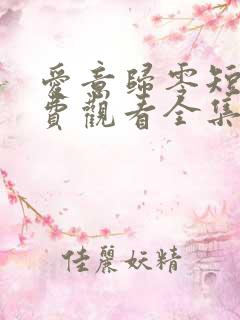 愛意歸零短
費觀看全集
佳麗妖精